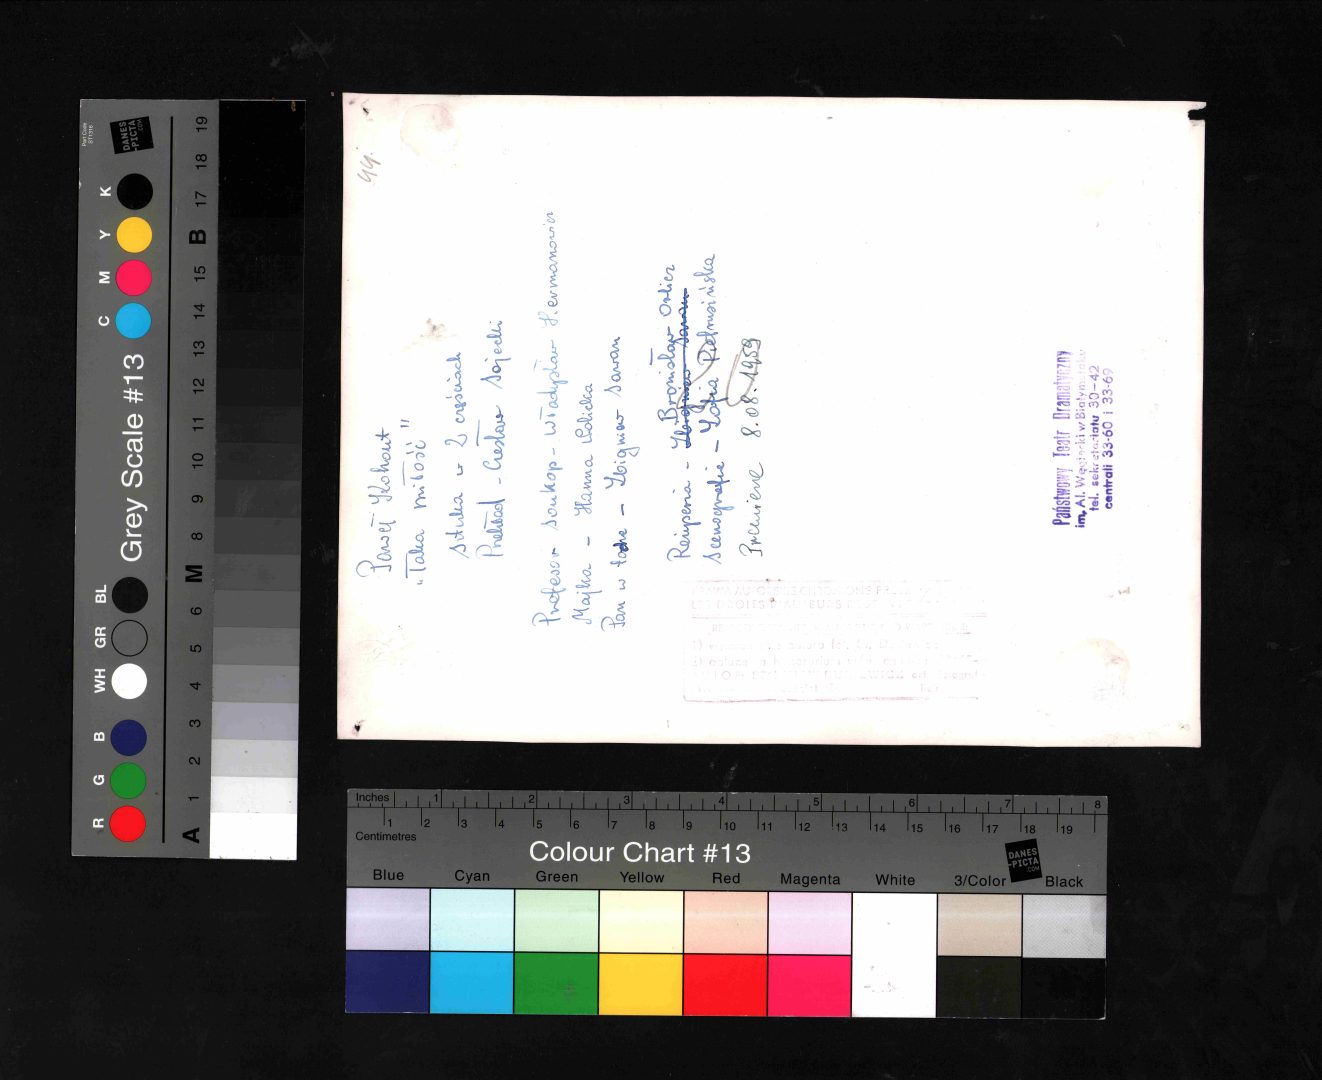 44.
Paweł Kohout
"Taka miłość"
sztuka w 2 częściach
Przekład - Czesław Sojecki
Profesor Soukop - Władysław Hermanowicz
Majka - Hanna
Pan w todze - Zbigniew Sawan
Reżyseria - Zbigniew Sawan Bronisław Orlicz
Scenografia - Zofia Pietrusińska
8.08.1959
Państwowy Teatr Dramatyczny
im. Al. Węgierki w Białymstoku
tel. sekretariatu 30-42
centrali 33-60 i 33-69
Part Code
ST1316
DANES
-PICTA
.COM
Grey Scale #13
R G B WH GR BL C M Y K
A 1 2 3 4 5 6 M 8 9 10 11 12 13 14 15 B 17 18 19
Inches 1 2 3 4 5 6 7 8
Centimetres 1 2 3 4 5 6 7 8 9 10 11 12 13 14 15 16 17 18 19
Colour Chart #13
DANES
-PICTA
.COM
Blue Cyan Green Yellow Red Magenta White 3/Color Black